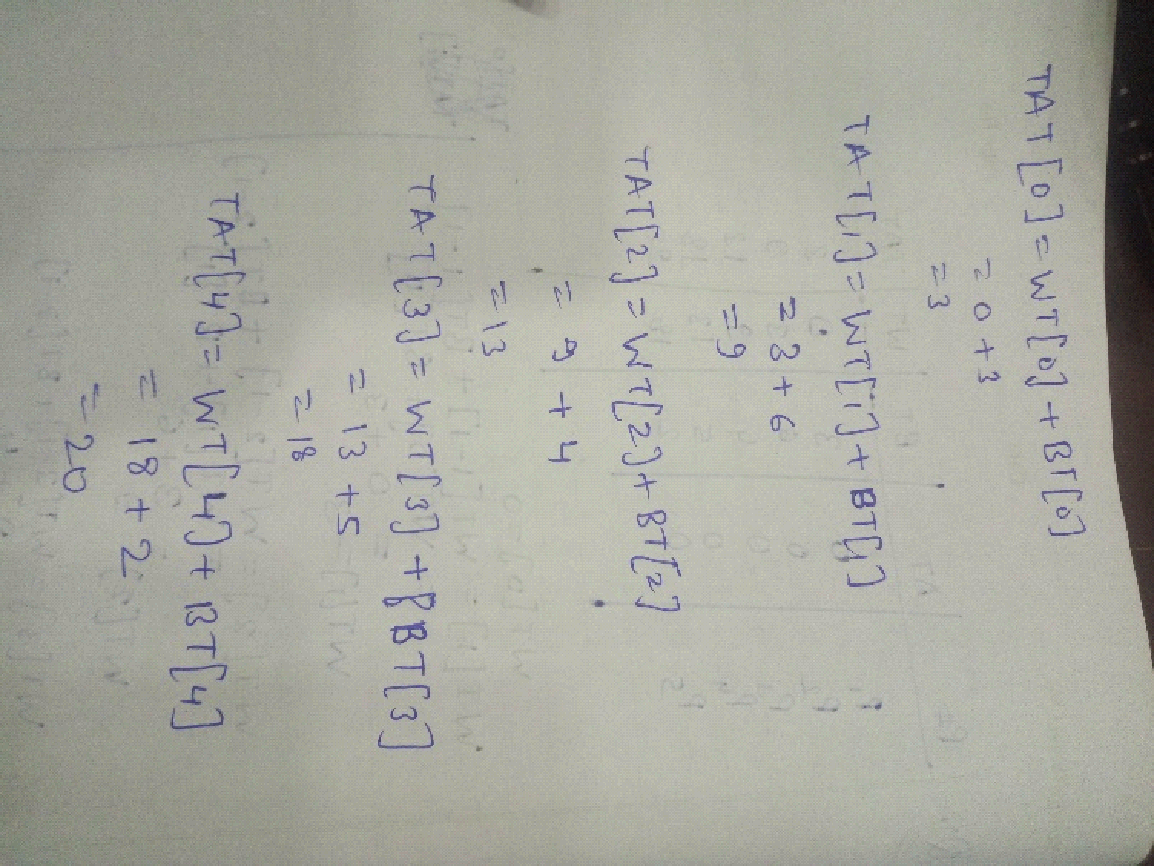 TAT[0] = WT[0] + BT[0]
= 0 + 3
= 3
TAT[1] = WT[1] + BT[1]
= 3 + 6
= 9
TAT[2] = WT[2] + BT[2]
= 9 + 4
= 13
TAT[3] = WT[3] + BT[3]
= 13 + 5
= 18
TAT[4] = WT[4] + BT[4]
= 18 + 2
= 20